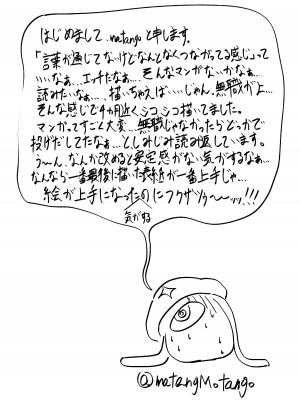 はじめまして、matangoと申します。
「言葉が通じてないけどなんとなくつながってる感じ」って
いいなぁ…エッチだなぁ… そんなマンガないかなぁ…
読みたいなぁ…、描いちゃえばいいじゃん、無職がよ…
そんな感じで4ヵ月近くシコシコ描いてました。
マンガってすごく大変…無職じゃなかったらどっかで
投げだしてたなぁ…としみじみ読み返しています。
う〜ん、なんか改めると安定感がない気がするなぁ…
なんなら一番最後に描いた表紙が一番上手じゃ…
絵が上手になったのにフクザツゥ〜ッ!!!
気がする
@matangMotango